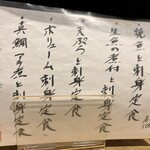 焼魚と刺身定食
生魚の煮付と刺身定食
天ぷらと刺身定食
ボリューム刺身定食
真鯛子煮と刺身定食